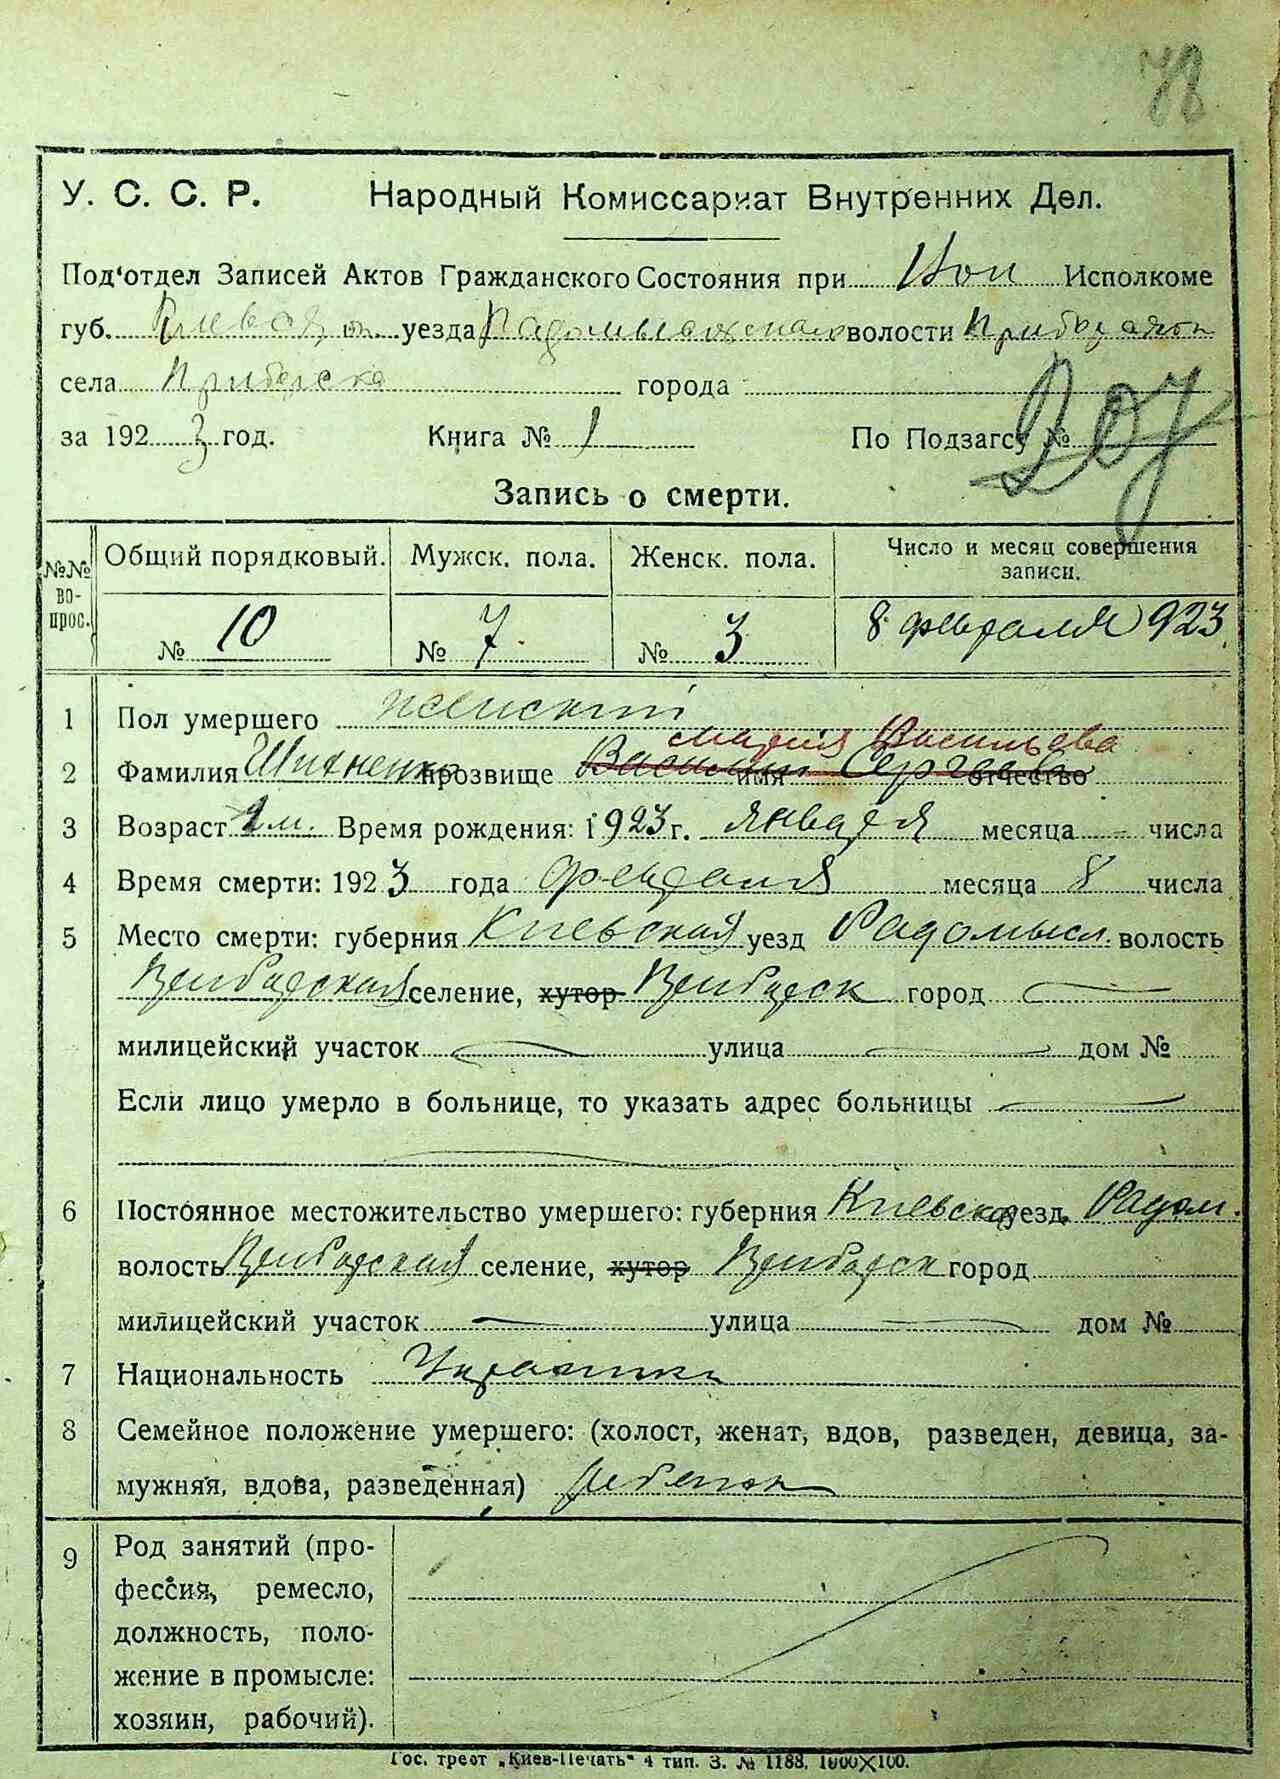 78
У. С. С. Р. Народный Комиссариат Внутренних Дел.
Под'отдел Записей Актов Гражданского Состояния при Исполкоме
губ. Киевской уезда Радомысльского волости
села Прибирска города
за 1923 год. Книга № 1 По Подзагсу № 207
Запись о смерти.
№№ вопрос. Общий порядковый. Мужск. пола. Женск. пола. Число и месяц совершения записи.
№ 10 № 7 № 3 8 февраля 923
1 Пол умершего женский
Мария Васильева
2 Фамилия прозвище Василий имя Сергеев отчество
3 Возраст 1 м. Время рождения: 1923 г. января месяца числа
4 Время смерти: 1923 года февраля месяца 8 числа
5 Место смерти: губерния Киевская уезд Радомысл. волость
Прибирская селение, хутор Прибирск город
милицейский участок улица дом №
Если лицо умерло в больнице, то указать адрес больницы
6 Постоянное местожительство умершего: губерния Киевская уезд Радом.
волость Прибирская селение, хутор Прибирск город
милицейский участок улица дом №
7 Национальность
8 Семейное положение умершего: (холост, женат, вдов, разведен, девица, за-
мужняя, вдова, разведенная) ребенок
9 Род занятий (про-
фессия, ремесло,
должность, поло-
жение в промысле:
хозяин, рабочий).
Гос. трест „Киев-Печать" 4 тип. З. № 1188. 1000×100.